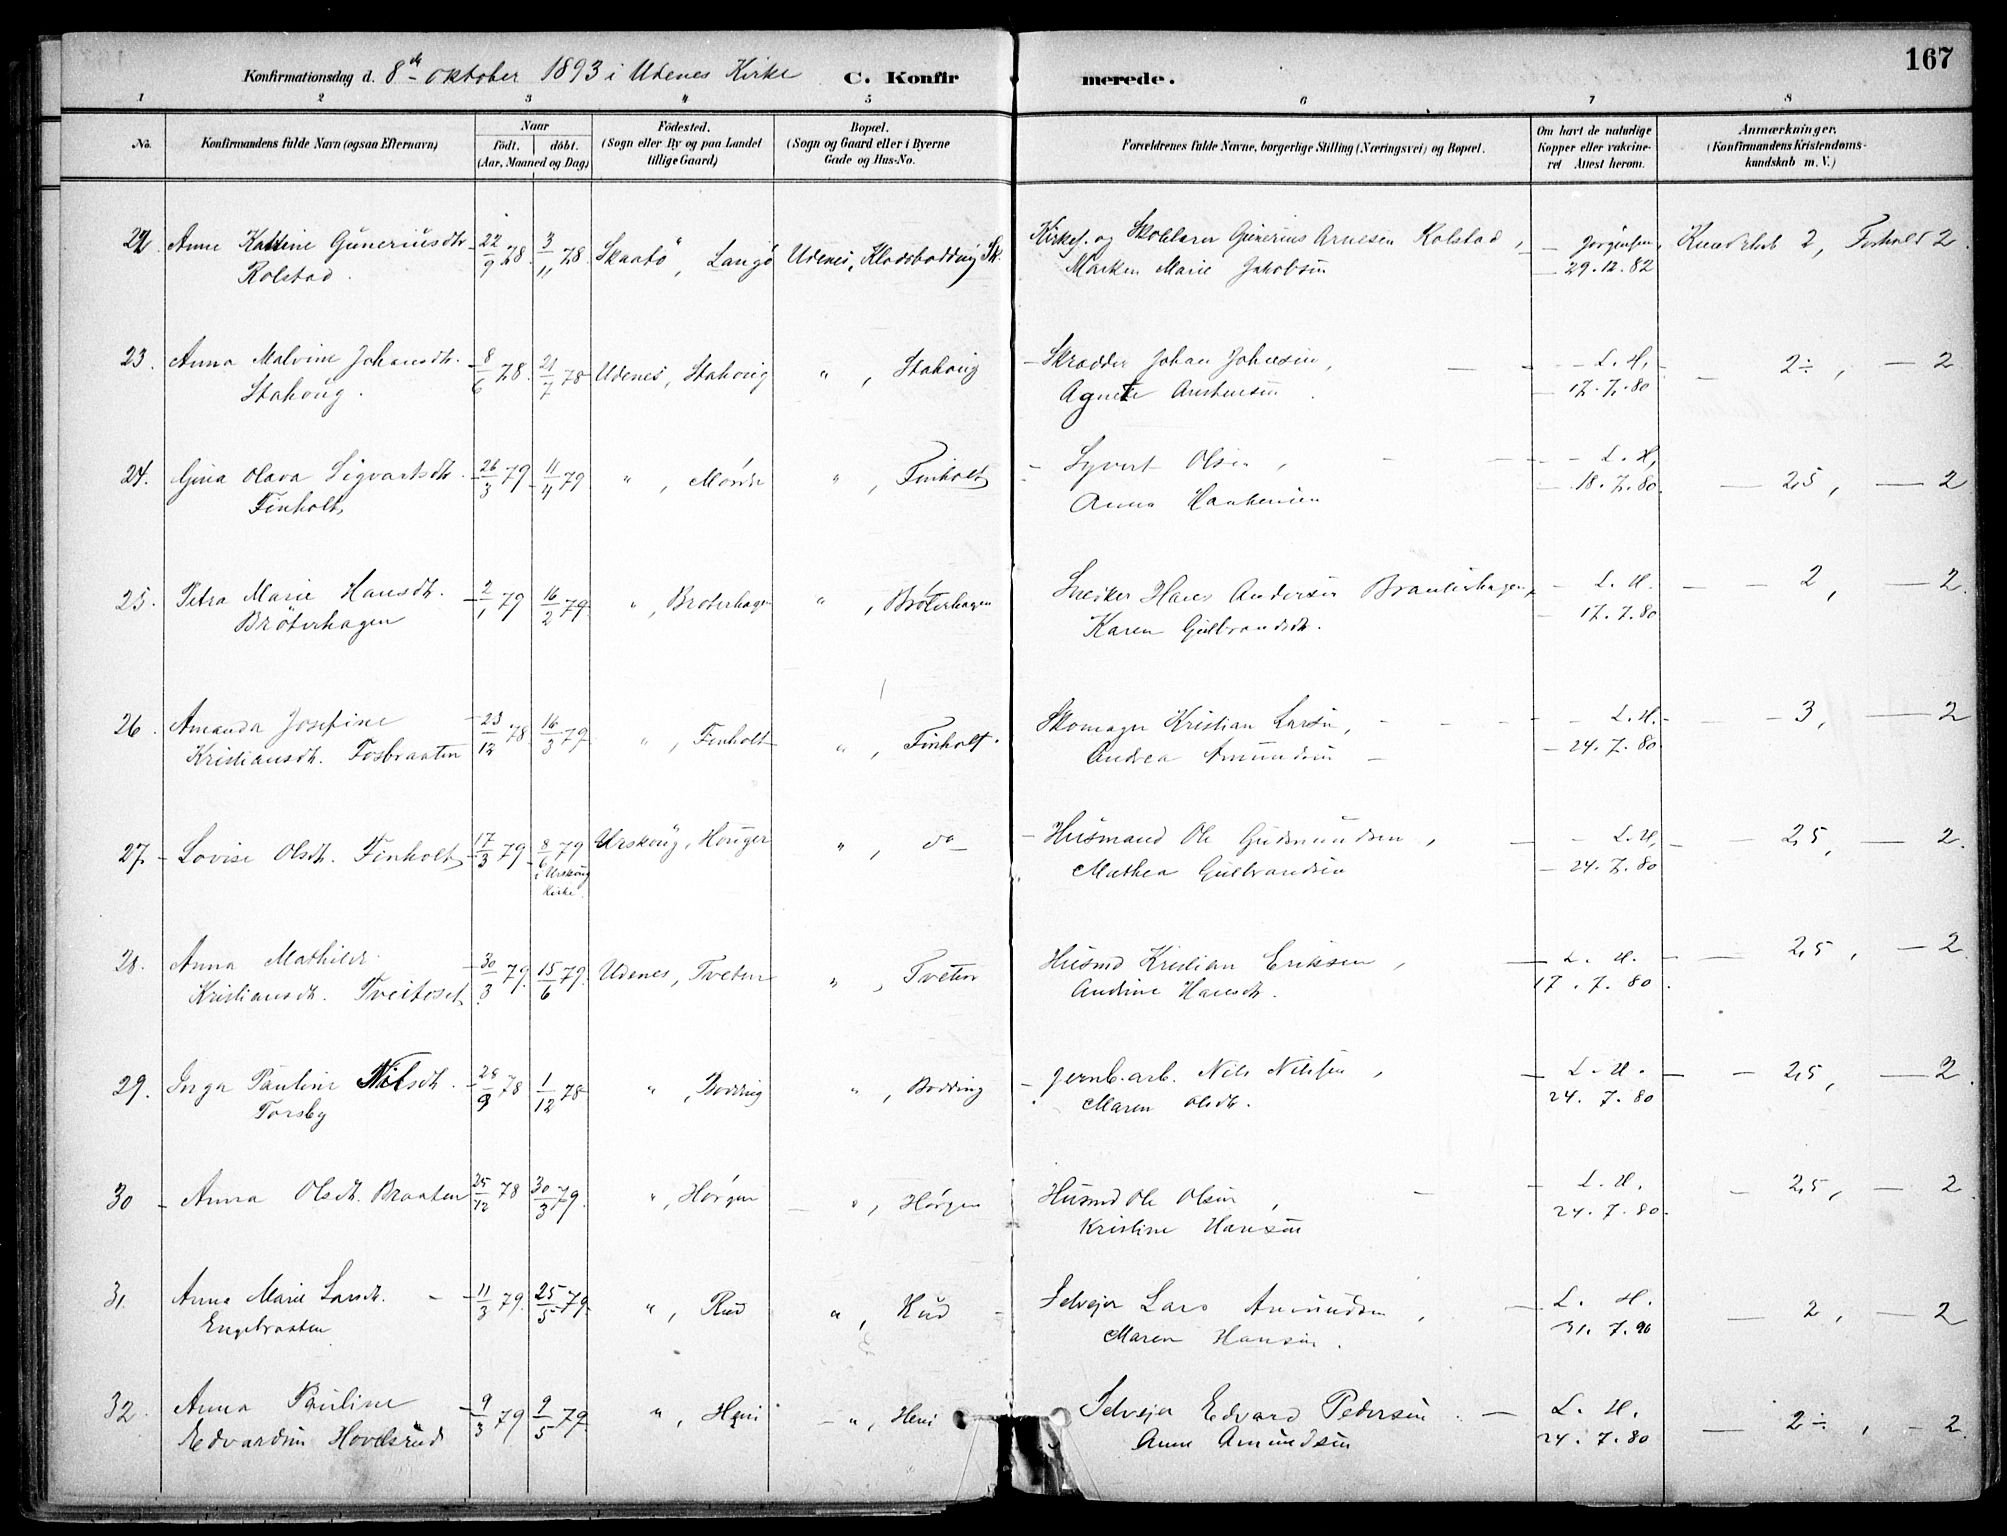 Konfirmationsdag d. 8de oktober 1893 i Udenes Kirke C. Konfirmerede. 167
1 2 3 4 5 6 7 8
No. Konfirmandens fulde Navn (ogsaa Efternavn) Naar født. døbt. (Aar, Maaned og Dag) Fødested. (Sogn eller By og paa Landet tillige Gaard) Bopæl. (Sogn og Gaard eller i Byerne Gade og Hus-No. Forældrenes fulde Navne, borgerlige Stilling (Næringsvei) og Bopæl. Om havt de naturlige Kopper eller vakcineret Attest herom. Anmærkninger. (Konfirmandens Kristendomskundskab m. V.)
22. Anne Katrine Guneriusdtr 22/9 78. 3/11 78. Skaatø, Langø Udenes, Klodsbødding Sk. Kirkes. og Skolelærer Gunerius Arnesen Kolstad, Jørgensen, Kundskab 2, Forhold 2.
Kolstad. Maren Marie Jakobsen 29.12.82
23. Anna Malvine Johansdtr. 8/6 78. 21/7 78 Udenes, Stahoug " , Stahoug Skrædder Johan Johnsen, L. H. 2÷, 2
Stahoug. Agnete Austensen 17.7.80
24. Gina Olava Sigvartsdtr. 26/3 79 11/4 79 " , Mørder " , Finholt Syvert Olsen, L. H. 2,5, 2
Finholt Anna Haakensen 18.7.80.
25. Petra Marie Hansdtr. 2/1 79 16/2 79 " , Brøterhagen " , Brøterhagen Snedker Hans Andersen Brauterhagen, L. H. 2, 2
Brøterhagen Karen Gulbrandsdtr. 17.7.80
26. Amanda Josefine 23/12 78 16/3 79. " , Finholt " , Finholt. Skomager Kristian Larsen, L. H. 3, 2
Kristiansdtr. Fosbraaten Andrea Amundsen 24.7.80
27. Lovise Olsdtr. Finholt 17/3 79 8/6 79 Urskoug, Houger " , do Husmand Ole Gudmundsen, L. H, 2,5, 2.
i Urskoug Kirke. Mathea Gulbrandsen 24.7.80
28. Anna Mathilde 30/3 79. 15/6 79. Udenes, Tveter " , Tveter Husmd Kristian Eriksen, L. H. 2,5, 2
Kristiansdtr. Tveitoset Andrine Hansdtr. 17.7.80.
29. Inga Pauline Nilsdtr. 28/9 78 1/12 78 " , Bodding " , Bodding Jernb.arb. Nils Nilsen, L. H. 2,5, 2
Torsby Maren Olsdtr. 24.7.80
30 Anna Olsdtr. Braaten 25/12 78 30/3 79. " , Hørgen " , Hørgen Husmd Ole Olsen, L. H. 2,5, 2.
Kristine Hansen 24.7.80.
31. Anna Marie Larsdtr. 11/3 79. 25/5 79. " , Rud " , Rud Selvejer Lars Amundsen, L. H. 2, 2
Engebraaten Maren Hansen. 31.7.90
32. Anna Pauline 9/3 79 9/5 79 " , Heni " , Heni Selvejer Edvard Pedersen. L. H. 2÷, 2.
Edvardsen Hovelsrud Anne Amundsen 24.7.80